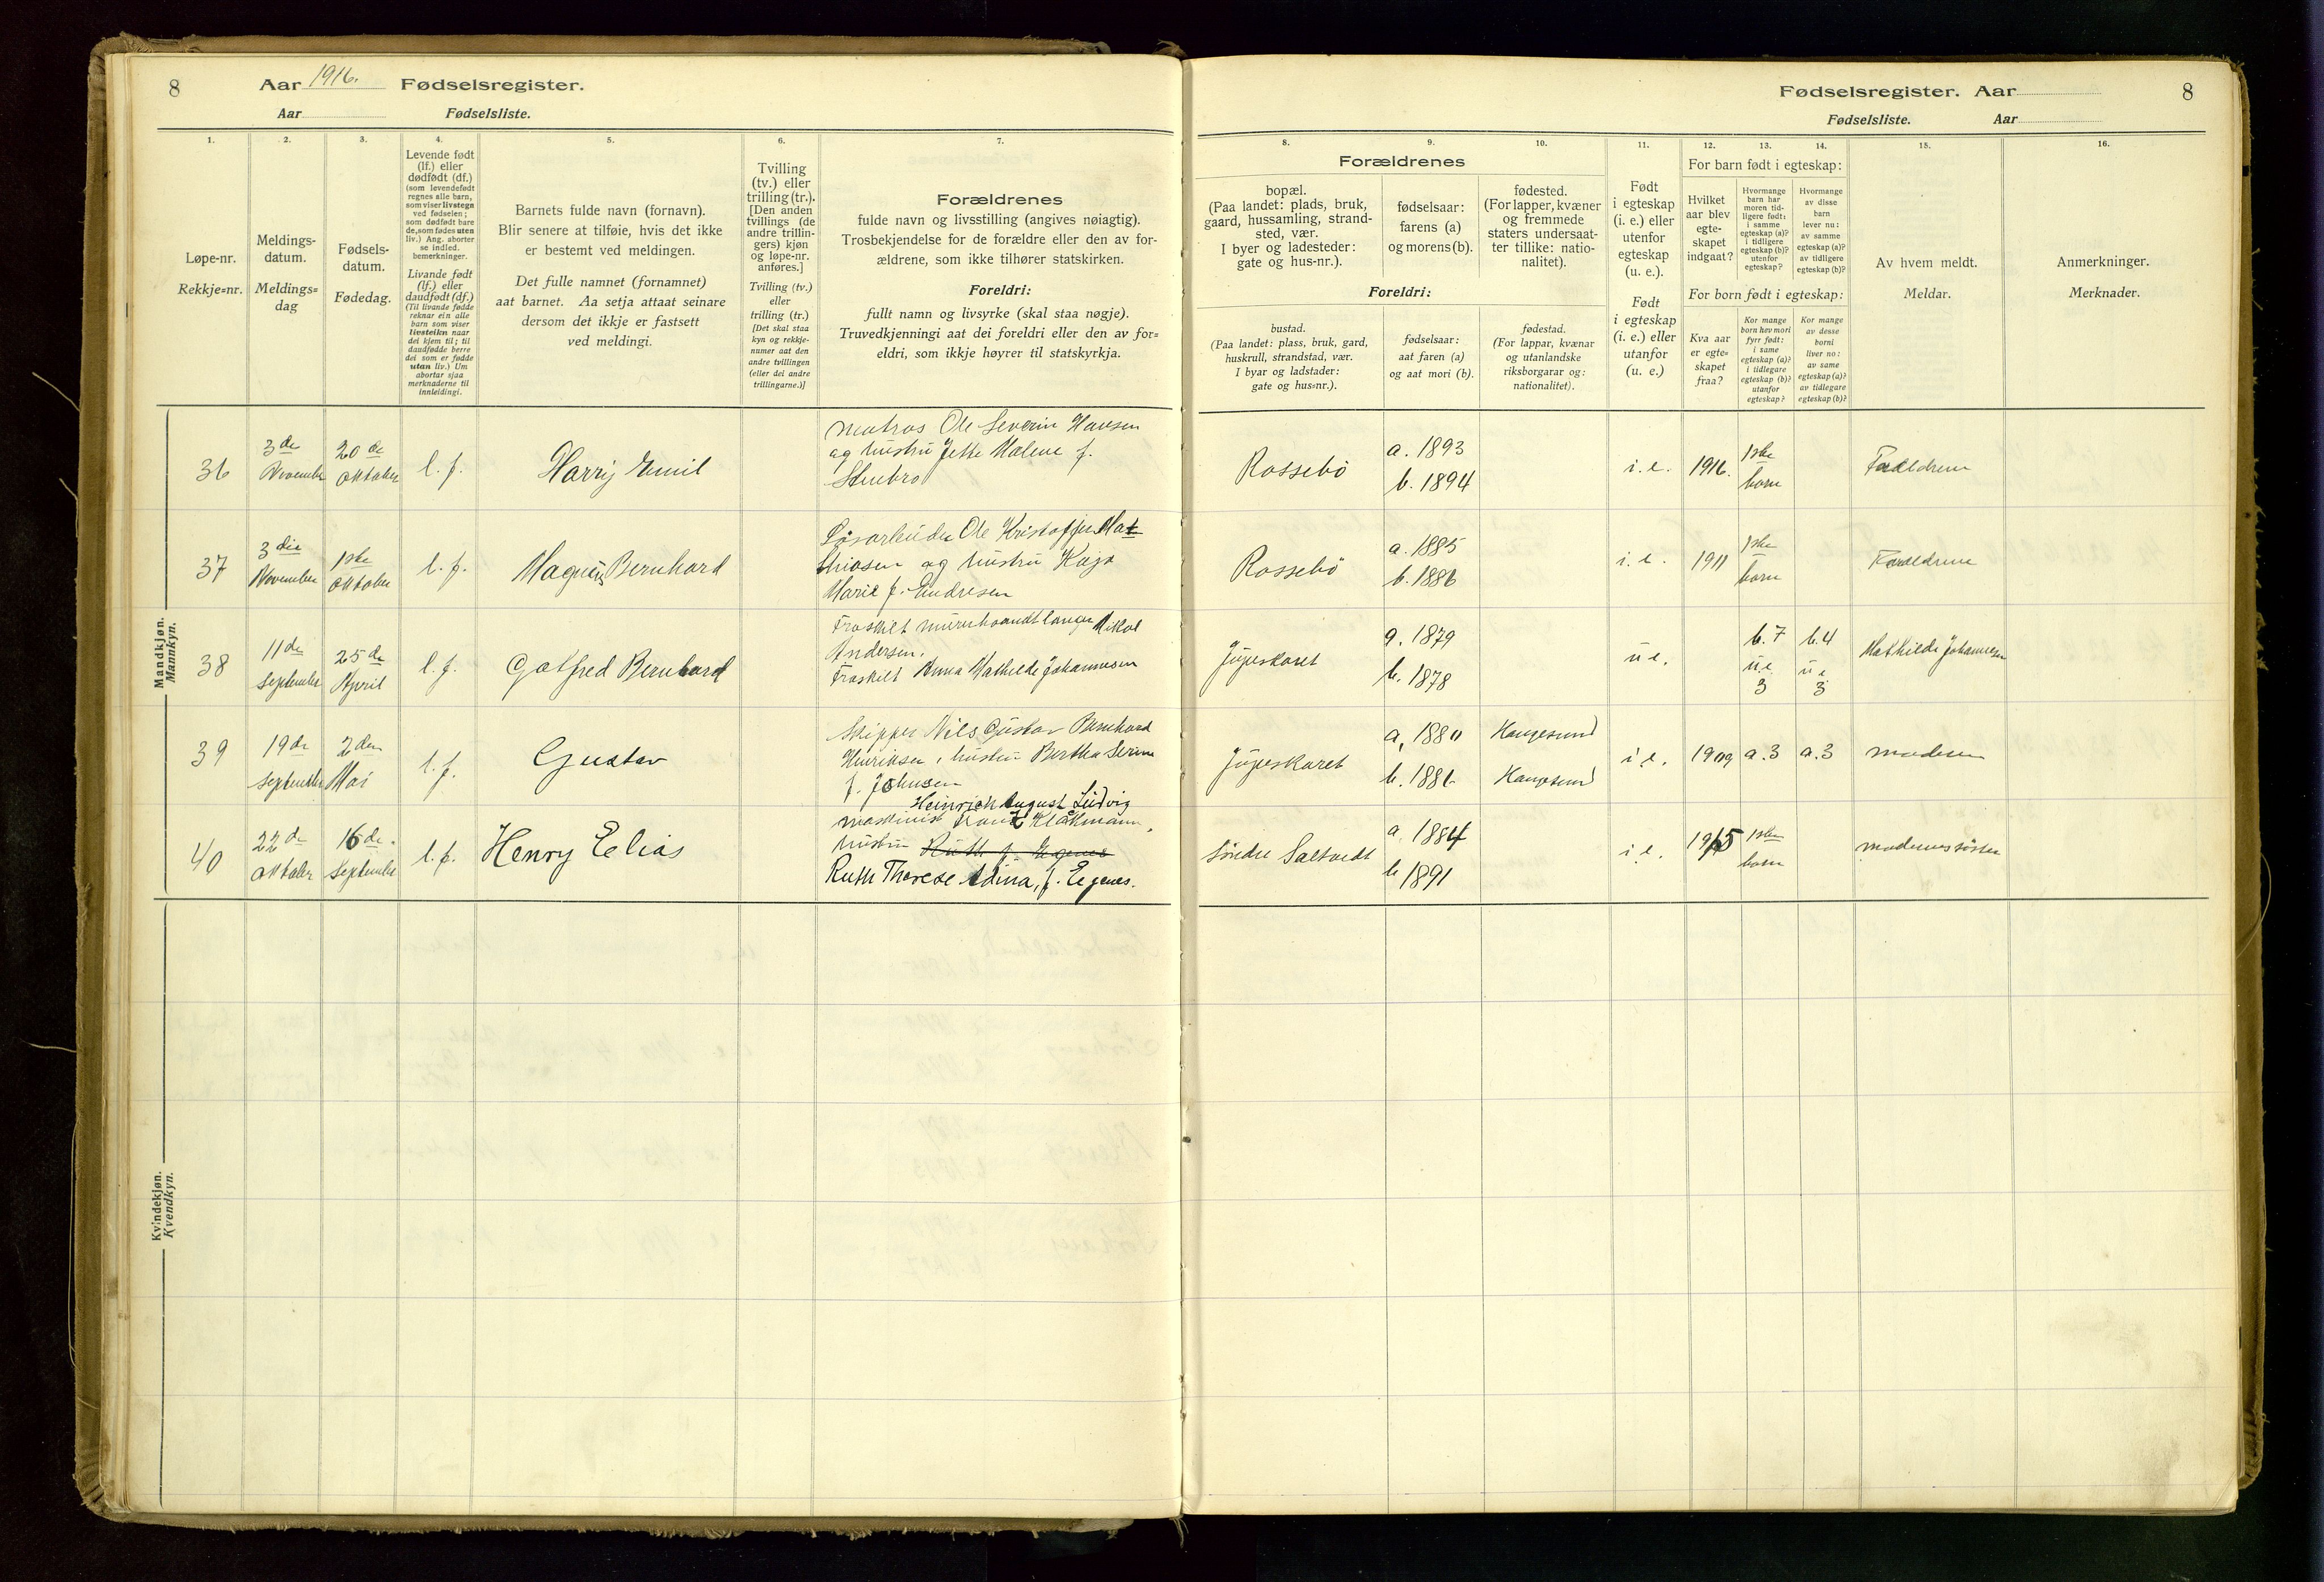 8 Aar 1916. Fødselsregister.
Aar Fødselsliste.
Fødselsregister. Aar 8
Fødselsliste. Aar
1.
Løpe-nr.
Rekkje=nr.
2.
Meldings-
datum.
Meldings=
dag
3.
Fødsels-
datum.
Fødedag.
4.
Levende født
(lf.) eller
dødfødt (df.)
(som levendefødt
regnes alle barn,
som viser livstegn
ved fødselen;
som dødfødt bare
de, som fødes uten
liv.) Ang. aborter
se indled.
bemerkninger.
Livande født
(lf.) eller
daudfødt (df.)
(Til livande fødde
reknar ein alle
barn som viser
livsteikn naar
dei kjem til; til
daudfødde berre
dei som er fødde
utan liv.) Um
abortar sjaa
merknaderne til
innleidingi.
5.
Barnets fulde navn (fornavn).
Blir senere at tilføie, hvis det ikke
er bestemt ved meldingen.
Det fulle namnet (fornamnet)
aat barnet. Aa setja attaat seinare
dersom det ikkje er fastsett
ved meldingi.
6.
Tvilling
(tv.) eller
trilling (tr.).
[Den anden
tvillings (de
andre trillin-
gers) kjøn
og løpe-nr.
anføres.]
Tvilling (tv.)
eller
trilling (tr.)
[Det skal staa
kyn og rekkje-
numer aat den
andre tvillingen
(eller dei andre
trillingarne.)]
7.
Forældrenes
fulde navn og livsstilling (angives nøiagtig).
Trosbekjendelse for de forældre eller den av for-
ældrene, som ikke tilhører statskirken.
Foreldri:
fullt namn og livsyrke (skal staa nøgje).
Truvedkjenningi aat dei foreldri eller den av for=
eldri, som ikkje høyrer til statskyrkja.
Forældrenes
8.
bopæl.
(Paa landet: plads, bruk,
gaard, hussamling, strand-
sted, vær.
I byer og ladesteder:
gate og hus-nr.).
9.
fødselsaar:
farens (a)
og morens (b).
10.
fødested.
(For lapper, kvæner
og fremmede
staters undersaat-
ter tillike: natio-
nalitet).
Foreldri:
bustad.
(Paa landet: plass, bruk, gard,
huskrull, strandstad, vær.
I byar og ladstader:
gate og hus=nr.).
fødselsaar:
aat faren (a)
og aat mori (b).
fødestad.
(For lappar, kvænar
og utanlandske
riksborgarar og:
nationalitet).
11.
Født
i egteskap
(i. e.) eller
utenfor
egteskap
(u. e.).
Født
i egteskap
(i. e.) eller
utanfor
(u. e.)
For barn født i egteskap:
12.
Hvilket
aar blev
egte-
skapet
indgaat?
13.
Hvormange
barn har
moren tid-
ligere født:
i samme
egteskap (a)?
i tidligere
egteskap (b)?
utenfor
egteskap?
14.
Hvormange
av disse
barn
lever nu:
av samme
egteskap (a)?
av tidligere
egteskap (b)?
For born født i egteskap:
Kva aar
er egte=
skapet
fraa?
Kor mange
born hev mori
fyrr født:
i same
egteskap (a)?
i tidlegare
egteskap (b)?
utanfor
egteskap?
Kor mange
av desse
borni
liver no:
av same
egteskap (a)?
av tidlegare
egteskap (b)?
15.
Av hvem meldt.
Meldar.
16.
Anmerkninger.
Merknader.
Mandkjøn.
Mannkyn.
36 3de November 20de Oktober l. f. Harry Emil
matros Ole Severin Hansen
og hustru Jette Malene f.
Stenbro
Rossebö a. 1893 b. 1894 i. e. 1916. 1ste barn Forældrene
37 3die November 1ste Oktober l. f. Magnus Bernhard
Løsarbeider Ole Kristoffer Mat
thiasen og hustru Kaja
Marie f. Endresen
Rossebö a. 1885 b. 1886 i. e. 1911 1ste barn Forældrene
38 11de September 25de April l. f. Gotfred Bernhard
Fraskilt murerhaandtlanger Mikal
Andersen.
Fraskilt Anna Mathilde Johannesen
a. 1879 b. 1878 u e. b. 7 u e 3 b. 4 u e 3 Mathilde Johannesen
39 19de September 2den Mai l. f. Gustav
Skipper Nils Gustav Bernhard
Henriksen, hustru Bertha Serine
f. Johnsen
a. 1880 b. 1886 Haugesund Haugesund i. e. 1909 a. 3 a. 3 moderen
40 22de Oktober 16de September l. f. Henry Elias
Heinrich August Ludvig
maskinist Franz Klakmann,
hustru Ruth f. Eegenes
Ruth Therese Adina, f. Eegenes.
Søndre Saltvedt a. 1884 b 1891 i. e. 1915 1ste barn modernes søster
Kvindekjøn.
Kvendkyn.